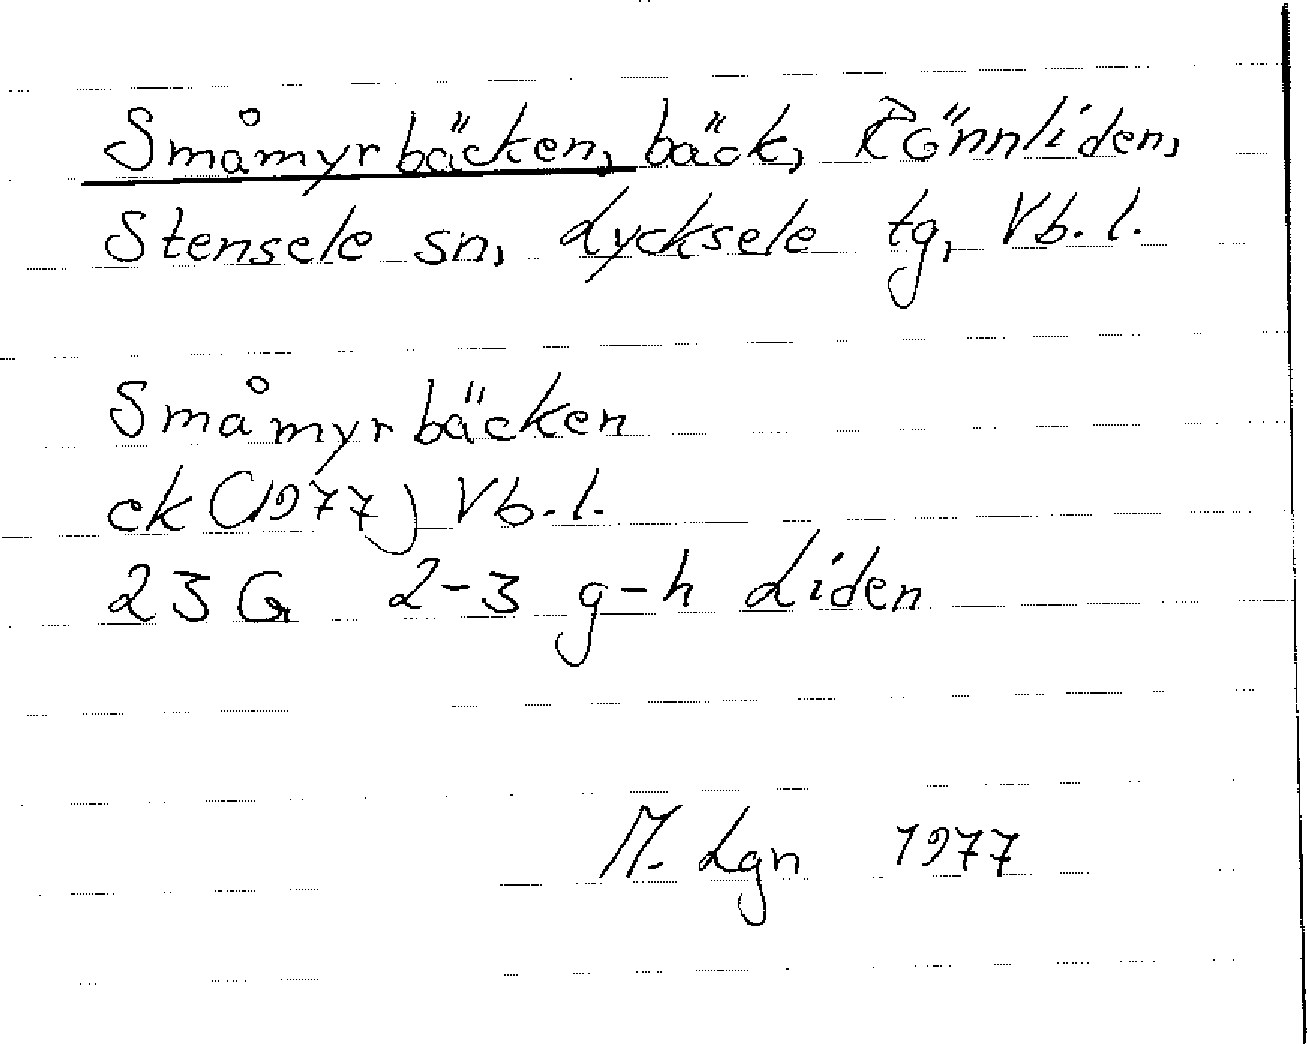 Småmyrbäcken, bäck, Rönnliden,
Stensele sn, Lycksele tg, Vb. l.
Småmyrbäcken
ek (1977) Vb. l.
23 G 2-3 g-h Liden
M. Lgn 1977